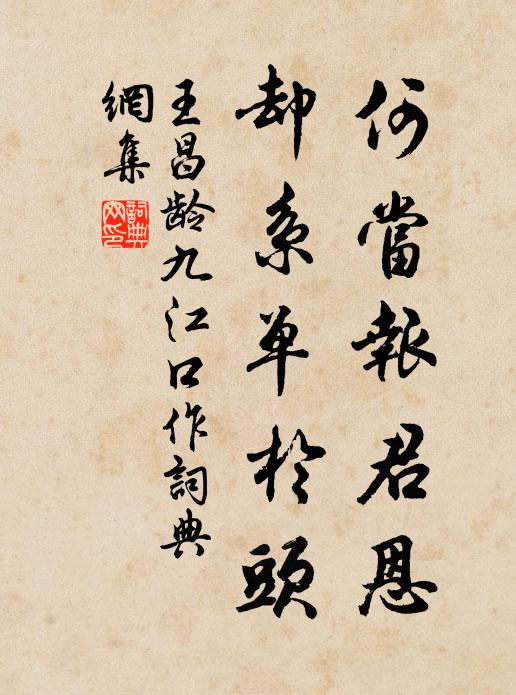 何當報君恩
却系单於頭
王昌龄九江口作詞典
網集
詞典
网印